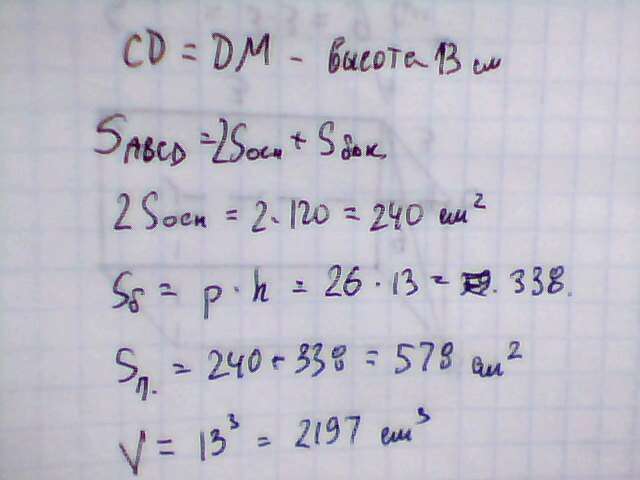 CD = DM - высота 13 см
S ABCD = 2Sосн + Sбок
2Sосн = 2·120 = 240 см²
Sб = p·h = 26·13 = . 338.
Sп. = 240 + 338 = 578 см²
V = 13³ = 2197 см³